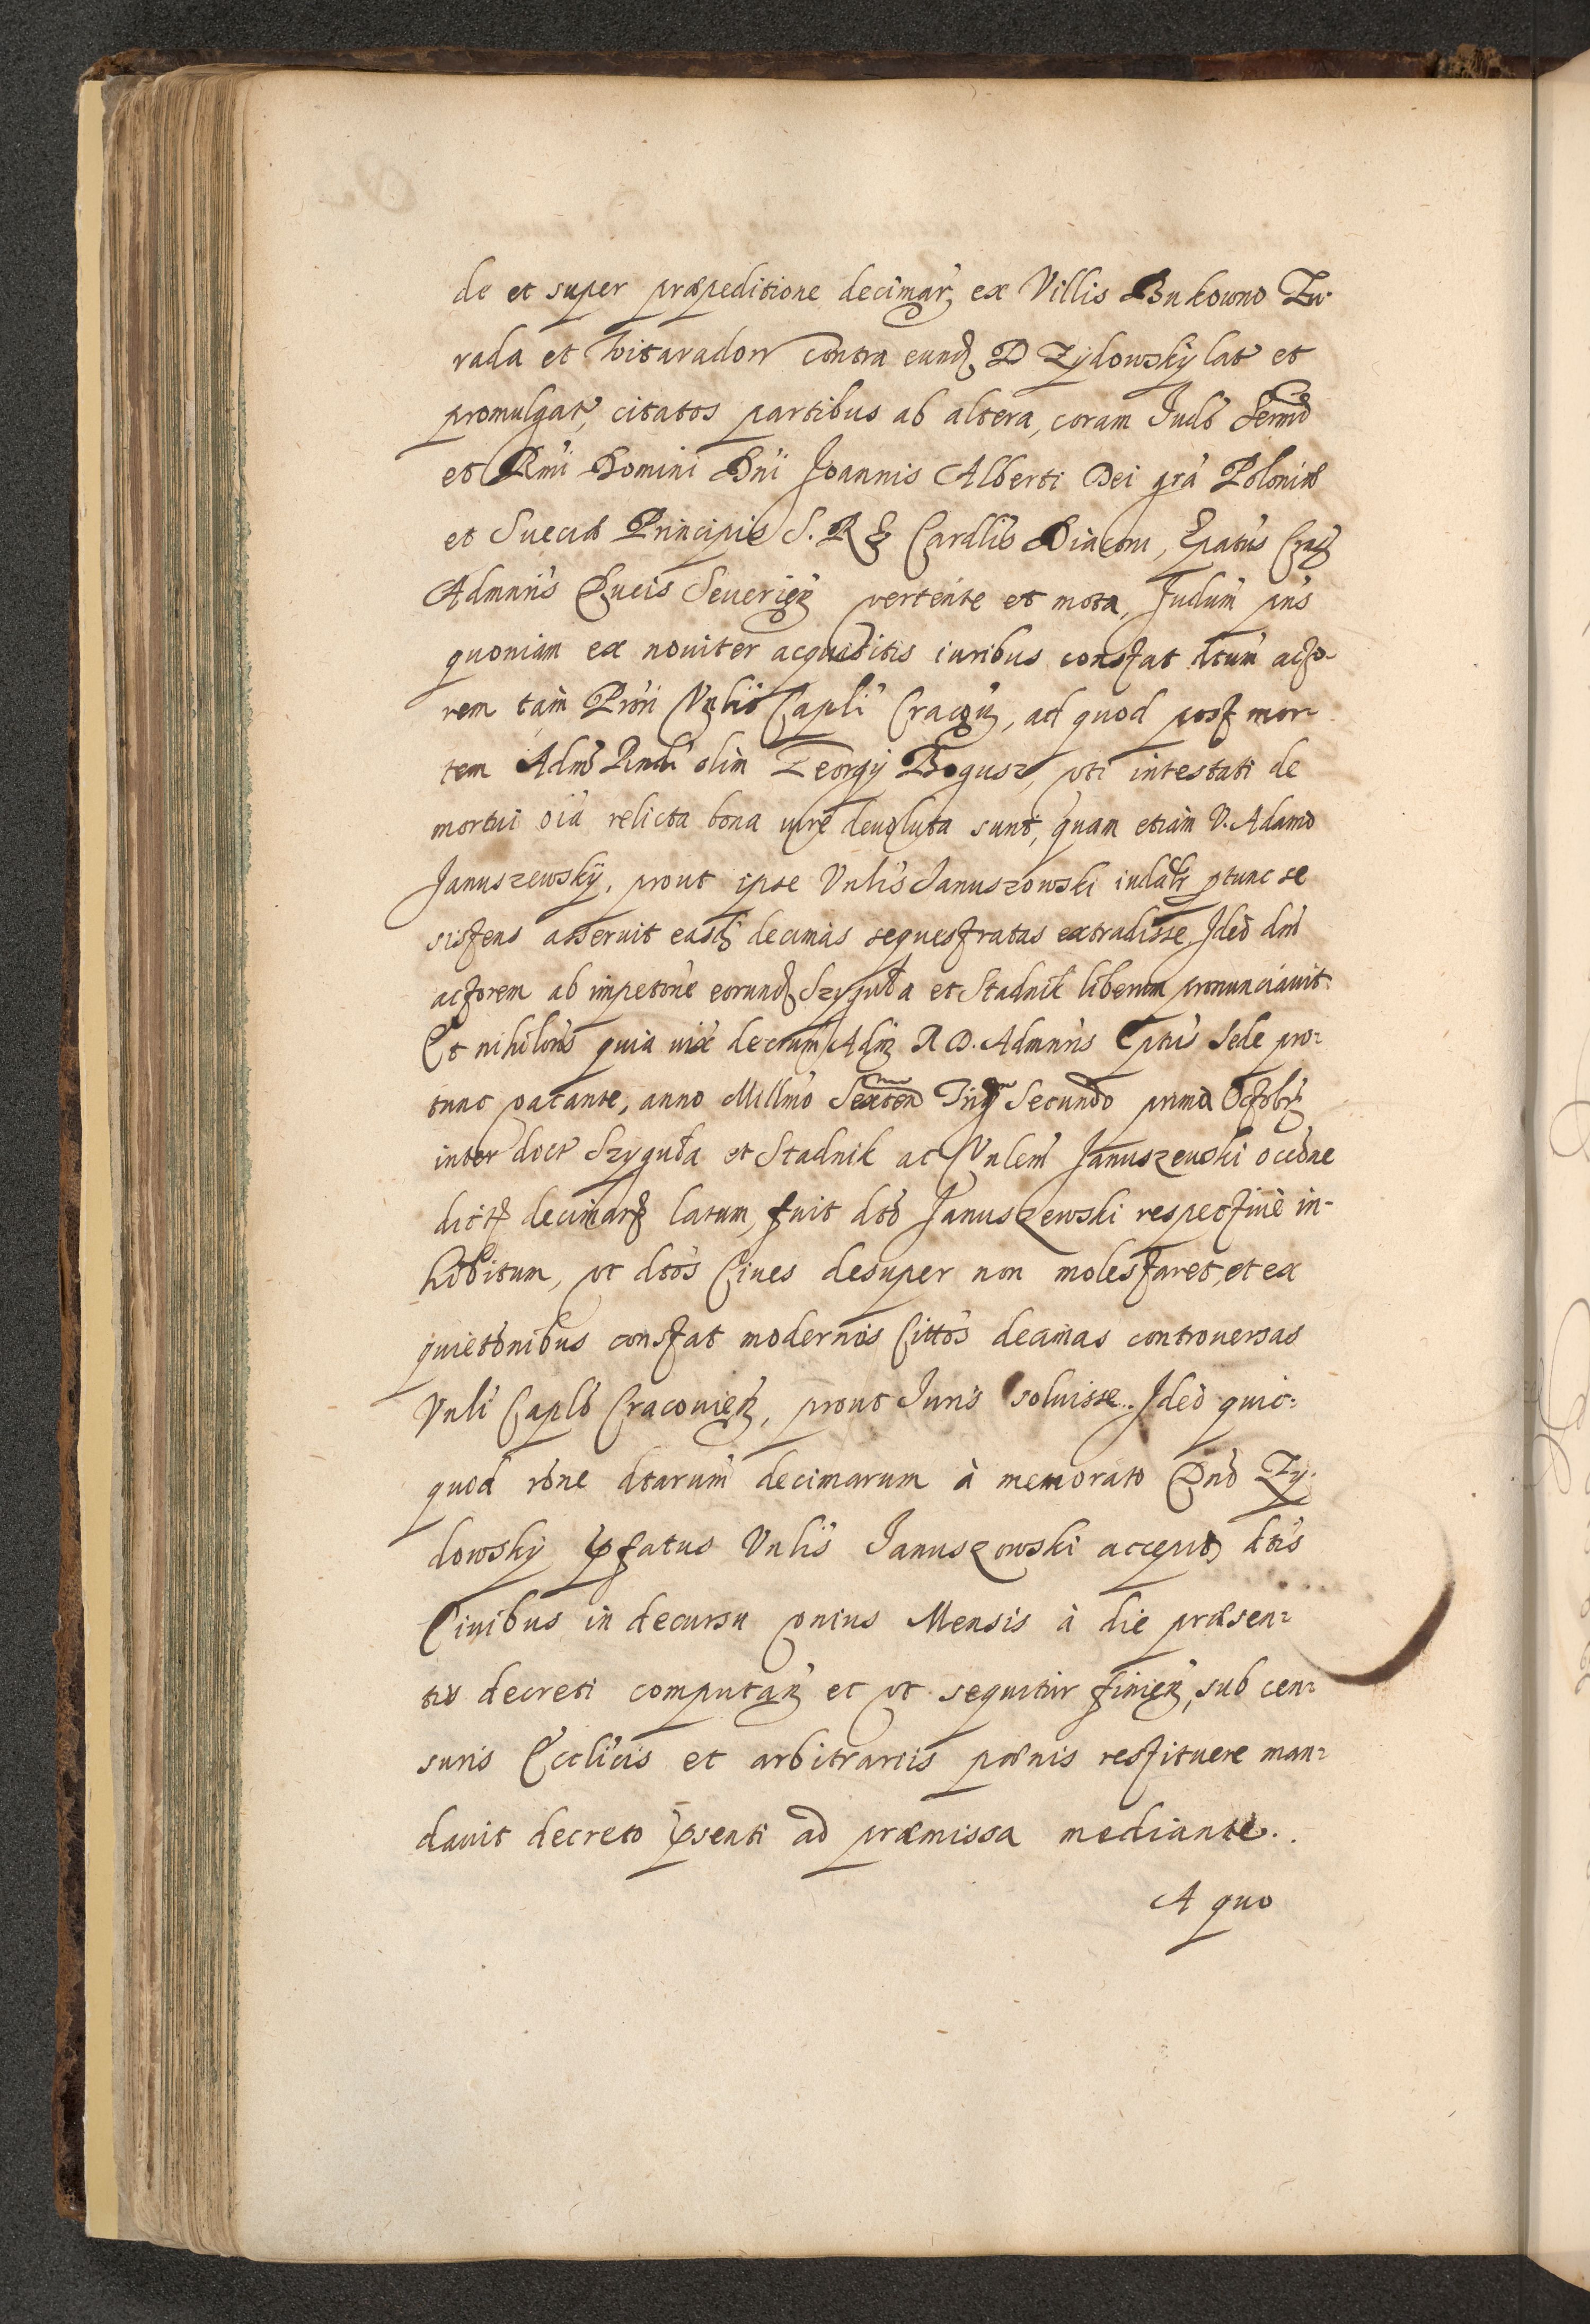 de et super præpeditione decimar, ex Villis Bukowno Zu-
rada et Witaradow contra eund. D Zydowsky lat et
promulgat, citatos partibus ab altera, coram Judō Sermō
et Rmi Domini Dni Joannis Alberti Dei grā Poloniæ
et Sueciæ Principis S. R E Cardlis Diaconi, Epatus Crac
Admnris Ducis Severien vertente et mota, Judum pns
quoniam ex noviter acquisitis iuribus constat dtum acto-
rem tam Prōri Vnlis Capli Cracovi, ad quod post mor-
tem Admō Rndi olim Georgÿ Bogusz, vti intestati de
mortui oīa relicta bona iure devoluta sunt, quam etiam V. Adamo
Januszewskÿ, prout ipse Vnlis Januszowski ptunc se
sistens asseruit easd decimas sequestratas extradisse, Ideo dm
actorem ab impetone eorund Szyguła et Stadnik liberum pronunciauit.
Et nihilōns quia decrum Adm R D. Admnris Eptus Sede pro-
tunc vacante, anno Millmo Sexten Trig Secundo prima Octobr
inter doct Szyguła et Stadnik ac Vnlem Januszewski ocōne
dict decimar latum, fuit dtō Januszewski respective in-
hibitum, vt dtōs Ciues desuper non molestaret, et ex
quietōnibus constat modernos Cittōs decimas controversas
Vnli Caplō Cracovien, prout Juris soluisse. Ideo quic-
quod rōne dtarum decimarum à memorato Dnō Zy-
dowskÿ pfatus Vnlis Januszowski accepit, dtis
Ciuibus in decursu vnius Mensis à die præsen-
tis decreti computan et vt sequitur finien, sub cen-
suris Ecclicis et arbitrariis pœnis restituere man-
dauit decreto psenti ad præmissa mediante.
A quo